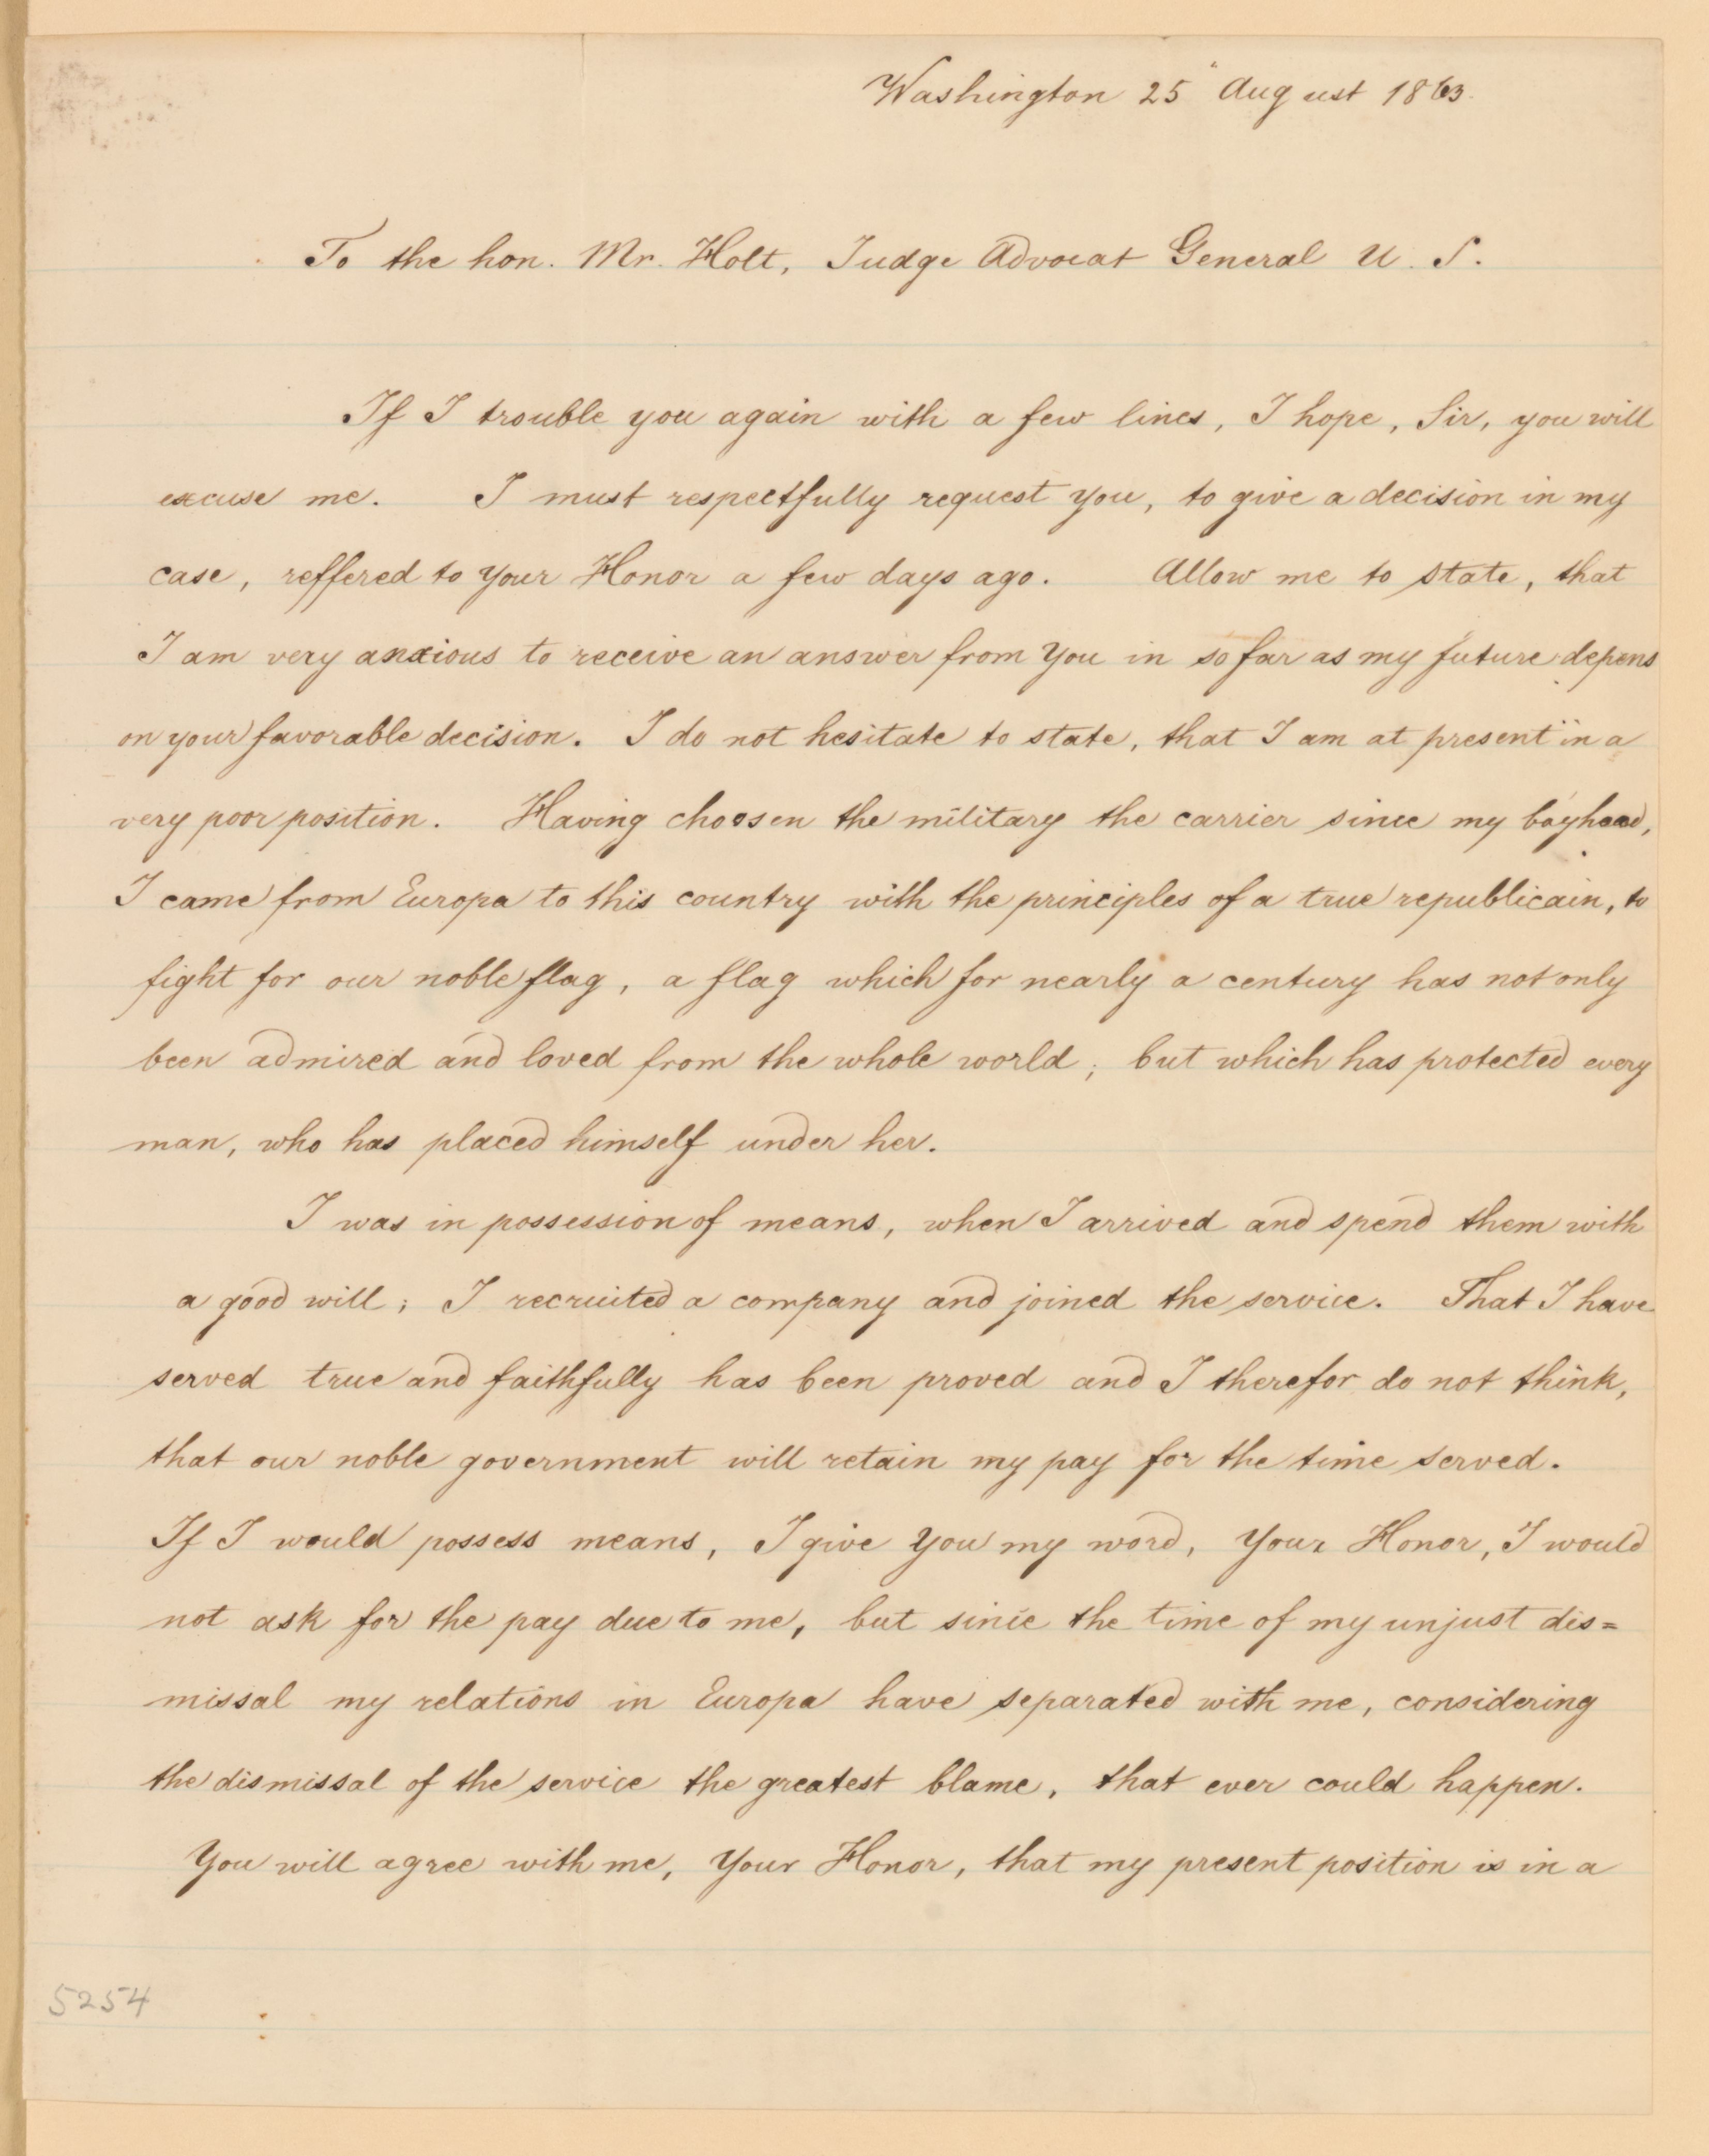 Washington 25" August 1863.
To the hon. Mr. Holt, Judge Advocat General U. S.
If I trouble you again with a few lines, I hope, Sir, you will
excuse me. I must respectfully request you, to give a decision in my
case, reffered to Your Honor a few days ago. Allow me to state, that
I am very anxious to receive an answer from You in so far as my future depens
on your favorable decision. I do not hesitate to state, that I am at present in a
very poor position. Having choosen the military the carrier since my boyhood,
I came from Europa to this country with the principles of a true republicain, to
fight for our noble flag, a flag which for nearly a century has not only
been admired and loved from the whole world; but which has protected every
man, who has placed himself under her.
I was in possession of means, when I arrived and spend them with
a good will; I recruited a company and joined the service. That I have
served true and faithfully has been proved and I therefor do not think,
that our noble government will retain my pay for the time served.
If I would possess means, I give You my word, Your Honor, I would
not ask for the pay due to me, but since the time of my unjust dis=
missal my relations in Europa have separated with me, considering
the dismissal of the service the greatest blame, that ever could happen.
You will agree with me, Your Honor, that my present position is in a
5254